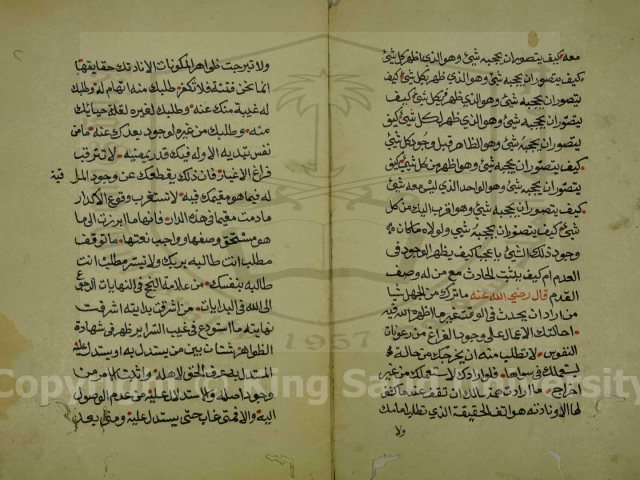 معه كيف يتصور ان يحجبه شئ وهو الذي اظهر كل شئ
كيف يتصور ان يحجبه شئ وهو الذي ظهر بكل شئ كيف
يتصور ان يحجبه شئ وهو الذي ظهر في كل شئ كيف
يتصور ان يحجبه شئ وهو الذي ظهر لكل شئ كيف
يتصور ان يحجبه شئ وهو الظاهر قبل وجود كل شئ
كيف يتصور ان يحجبه شئ وهو اظهر من كل شئ كيف
يتصور ان يحجبه شئ وهو الواحد الذي ليس معه شئ
كيف يتصور ان يحجبه شئ وهو اقرب اليك من كل
شئ كيف يتصور ان يحجبه شئ ولولاه ما كان
وجود ذلك الشئ يا عجبا كيف يظهر الوجود في
العدم ام كيف يثبت الحادث مع من له وصف
القدم قال رضي الله عنه ما ترك من الجهل شيا
من اراد ان يحدث في الوقت غير ما اظهره الله فيه
احالتك الاعمال على وجود الفراغ من رعونات
النفوس لا تطلب منه ان يخرجك من حالة
ليستعملك في سواها فلو ارادك لاستعملك من غير
اخراج ما ارادت همة سالك ان تقف عند ما كشف
لها الا ونادته هواتف الحقيقة الذي تطلب امامك
ولا
ولا تبرجت ظواهر المكونات الا نادتك حقايقها
انما نحن فتنة فلا تكفر طلبك منه اتهام له وطلبك
له غيبة منك عنه وطلبك لغيره لقلة حيائك
منه وطلبك من غيره لوجود بعدك عنه ما من
نفس تبديه الا وله فيك قدر يمضيه لا تترقب
فراغ الاغيار فان ذلك يقطعك عن وجود المراقبة
له فيما هو مقيمك فيه لا تستغرب وقوع الاكدار
ما دمت مقيما في هذه الدار فانها ما ابرزت الا ما
هو مستحق وصفها وواجب نعتها ما توقف
مطلب انت طالبه بربك ولا تيسر مطلب انت
طالبه بنفسك من علامة النجح في النهايات الرجوع
الى الله في البدايات من اشرقت بدايته اشرقت
نهايته ما استودع في غيب السراير ظهر في شهادة
الظواهر شتان بين من يستدل به او يستدل عليه
المستدل به عرف الحق لاهله واثبت الامر من
وجود اصله والاستدلال عليه من عدم الوصول
اليه والا فمتى غاب حتى يستدل عليه ومتى بعد
Copyright © King Saud University
1957